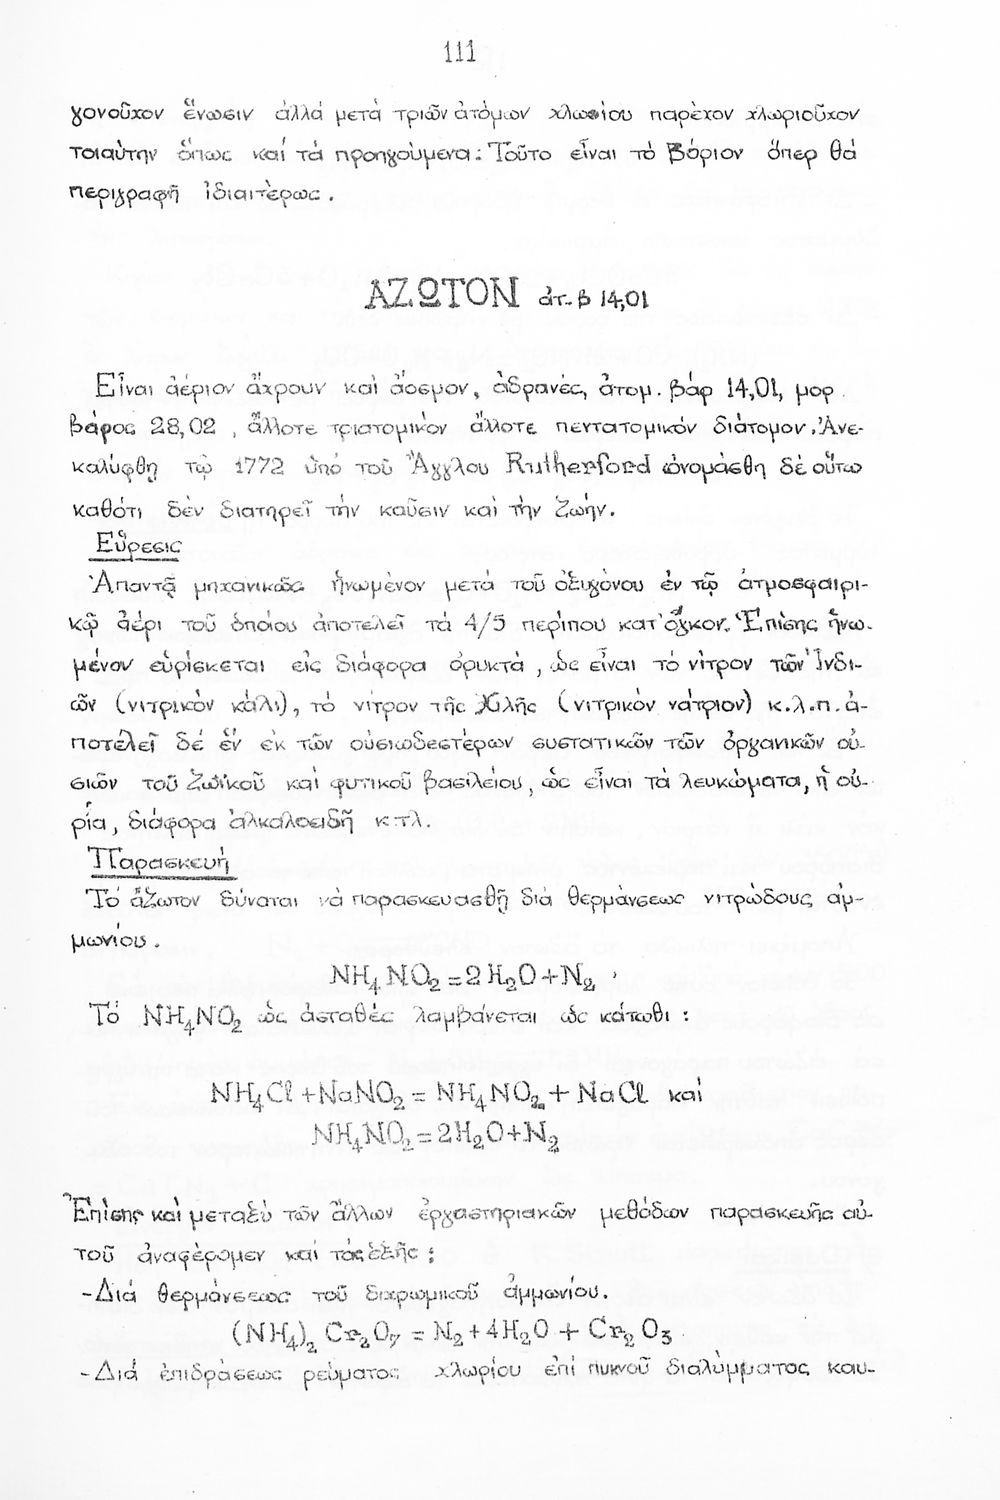 111
γονοῦχον ἕνωσιν ἀλλά μετά τριῶν ἀτόμων χλωρίου παρέχον χλωριοῦχον
τοιαύτην ὅπως καί τά προηγούμενα: Τοῦτο εἶναι τό Βόριον ὅπερ θά
περιγραφῆ ἰδιαιτέρως.
ΑΖΩΤΟΝ ἀτ. β 14,01
Εἶναι ἀέριον ἄχρουν καί ἄοσμον, ἀδρανές, ἀτομ. βάρ 14,01, μορ.
βάρος 28,02 , ἄλλοτε τριατομικόν ἄλλοτε πεντατομικόν διάτομον. Ἀνε-
καλύφθη τῷ 1772 ὑπό τοῦ Ἄγγλου Rutherford ὠνομάσθη δέ οὕτω
καθότι δέν διατηρεῖ τήν καῦσιν καί τήν ζωήν.
Εὕρεσις
Ἀπαντᾷ μηχανικῶς ἡνωμένον μετά τοῦ ὀξυγόνου ἐν τῷ ἀτμοσφαιρι-
κῷ ἀέρι τοῦ ὁποίου ἀποτελεῖ τά 4/5 περίπου κατ' ὄγκον. Ἐπίσης ἡνω-
μένον εὑρίσκεται εἰς διάφορα ὀρυκτά , ὡς εἶναι τό νίτρον τῶν Ἰνδι-
ῶν (νιτρικόν κάλι), τό νίτρον τῆς Χιλῆς (νιτρικόν νάτριον) κ.λ.π. ἀ-
ποτελεῖ δέ ἕν ἐκ τῶν οὐσιωδεστέρων συστατικῶν τῶν ὀργανικῶν οὐ-
σιῶν τοῦ ζωϊκοῦ καί φυτικοῦ βασιλείου, ὡς εἶναι τά λευκώματα, ἡ οὐ-
ρία, διάφορα ἀλκαλοειδῆ κτλ.
Παρασκευή
Τό ἄζωτον δύναται νά παρασκευασθῇ διά θερμάνσεως νιτρώδους ἀμ-
μωνίου.
NH₄NO₂ = 2H₂O + N₂
Τό NH₄NO₂ ὡς ἀσταθές λαμβάνεται ὡς κάτωθι :
NH₄Cl + NaNO₂ = NH₄NO₂ + NaCl καί
NH₄NO₂ = 2H₂O + N₂
Ἐπίσης καί μεταξύ τῶν ἄλλων ἐργαστηριακῶν μεθόδων παρασκευῆς αὐ-
τοῦ ἀναφέρομεν καί τάς ἑξῆς :
-Διά θερμάνσεως τοῦ διχρωμικοῦ ἀμμωνίου.
(NH₄)₂ Cr₂O₇ = N₂ + 4H₂O + Cr₂O₃
-Διά ἐπιδράσεως ρεύματος χλωρίου ἐπί πυκνοῦ διαλύμματος καυ-